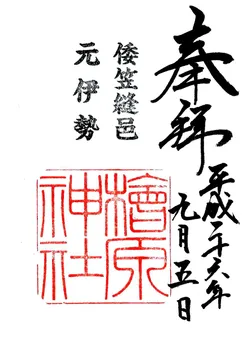 奉拝
平成二十六年
元月五日
倭笠縫邑
元伊勢
檜原
神社